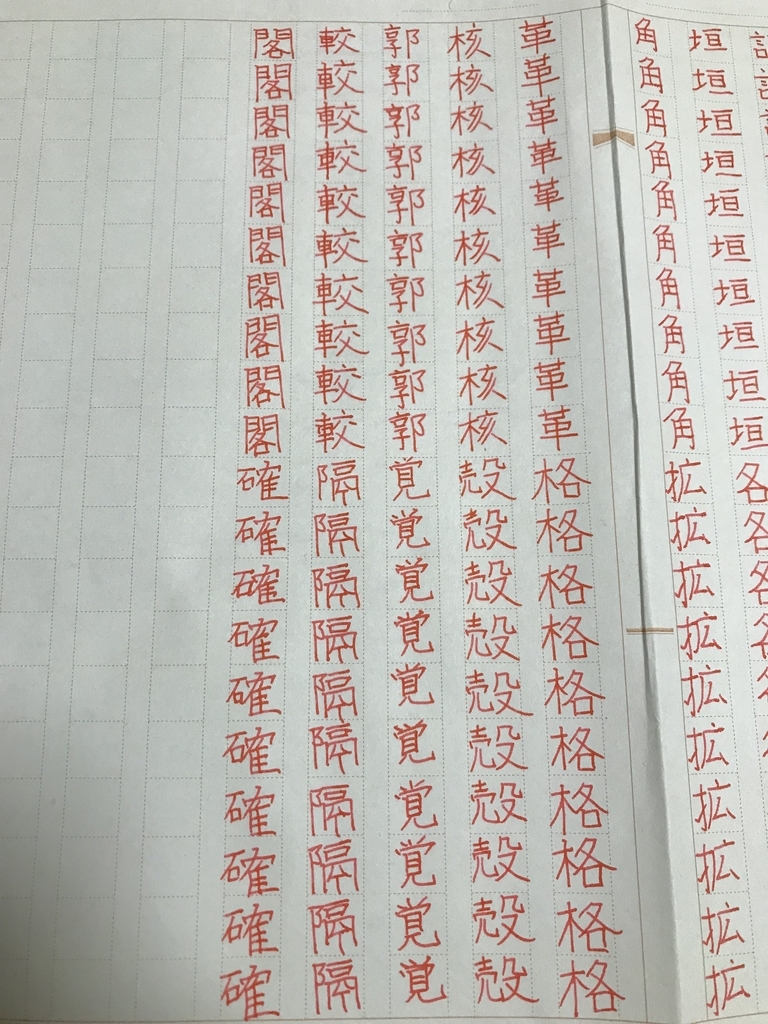 垣垣垣垣垣垣垣垣垣垣各各各各各
角角角角角角角角角角拡拡拡拡拡拡拡拡拡拡
革革革革革革革革革革格格格格格格格格格格
核核核核核核核核核核殻殻殻殻殻殻殻殻殻殻
郭郭郭郭郭郭郭郭郭郭覚覚覚覚覚覚覚覚覚覚
較較較較較較較較較較隔隔隔隔隔隔隔隔隔隔
閣閣閣閣閣閣閣閣閣閣確確確確確確確確確確